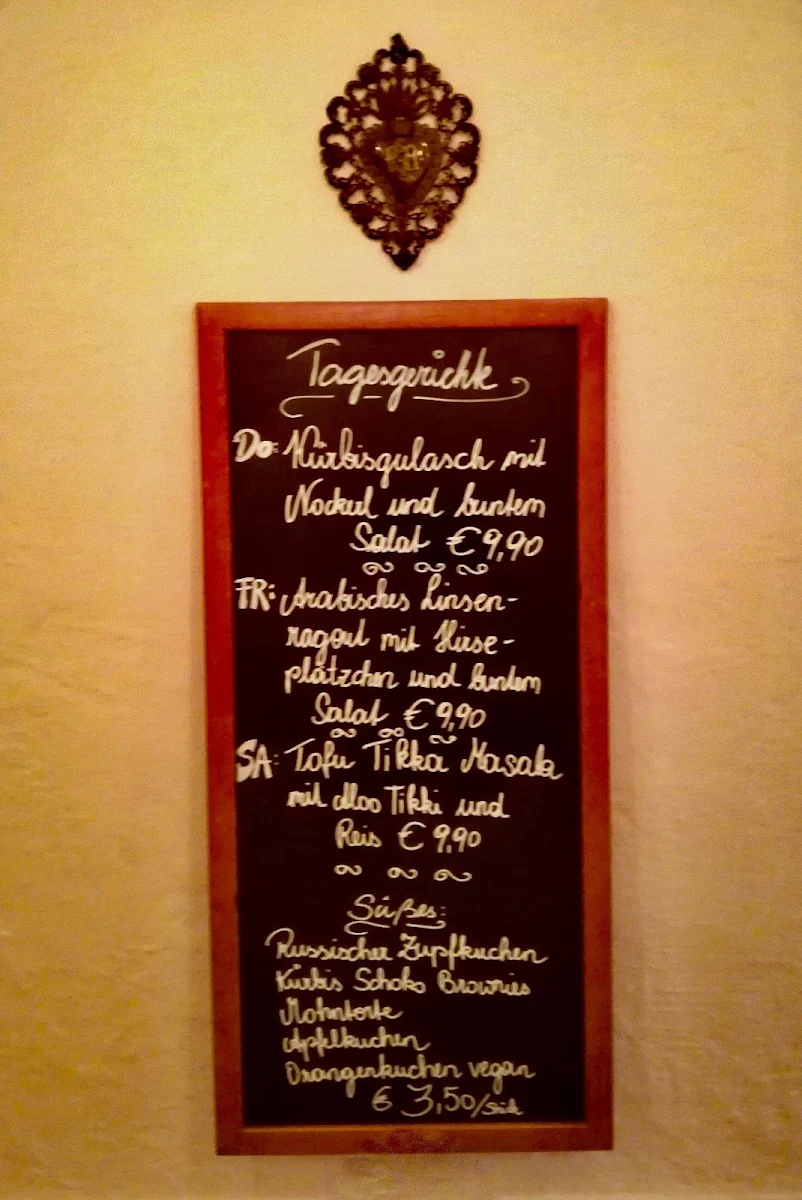 Tagesgerichte
Do: Kürbisgulasch mit
Nockerl und buntem
Salat € 9,90
FR: Arabisches Linsen-
ragout mit Hirse-
plätzchen und buntem
Salat € 9,90
SA: Tofu Tikka Masala
mit Aloo Tikki und
Reis € 9,90
Süßes:
Russischer Zupfkuchen
Kürbis Schoko Brownies
Mohntorte
Apfelkuchen
Orangenkuchen vegan
€ 3,50/Stück